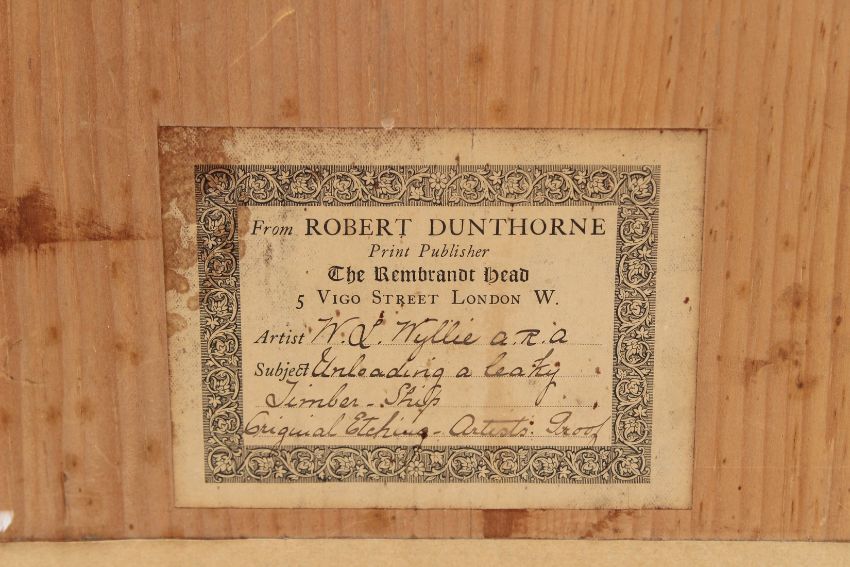 From ROBERT DUNTHORNE
Print Publisher
The Rembrandt Head
5 VIGO STREET LONDON W.
Artist W. L. Wyllie a.R.a
Subject Unloading a leaky
Timber-Ship
Original Etching - Artists. Proof